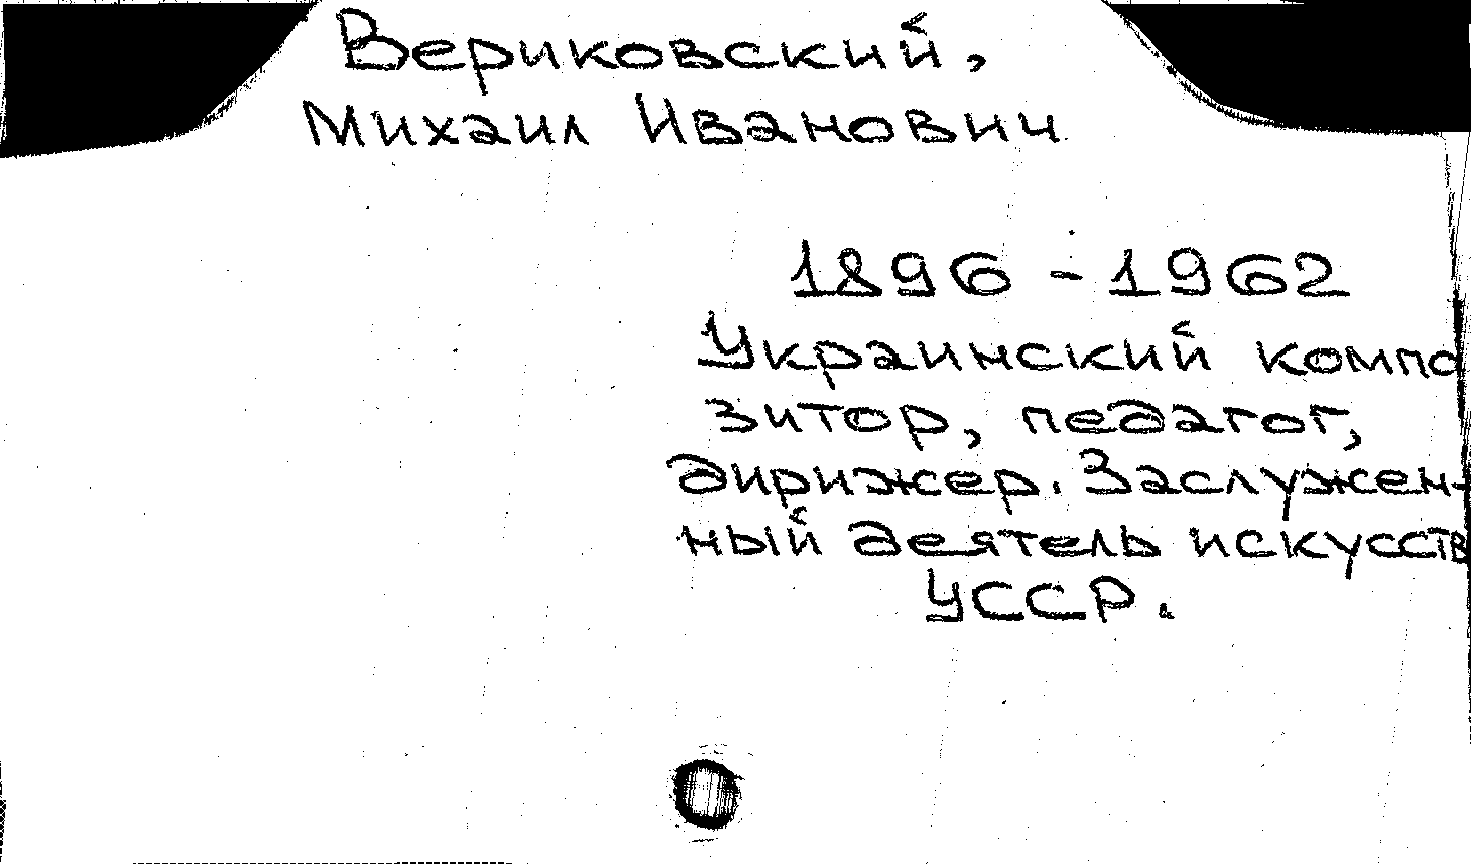 Вериковский,
Михаил Иванович
1896 - 1962
Украинский компо
зитор, педагог,
дирижер. Заслужен-
ный деятель искусств
УССР.